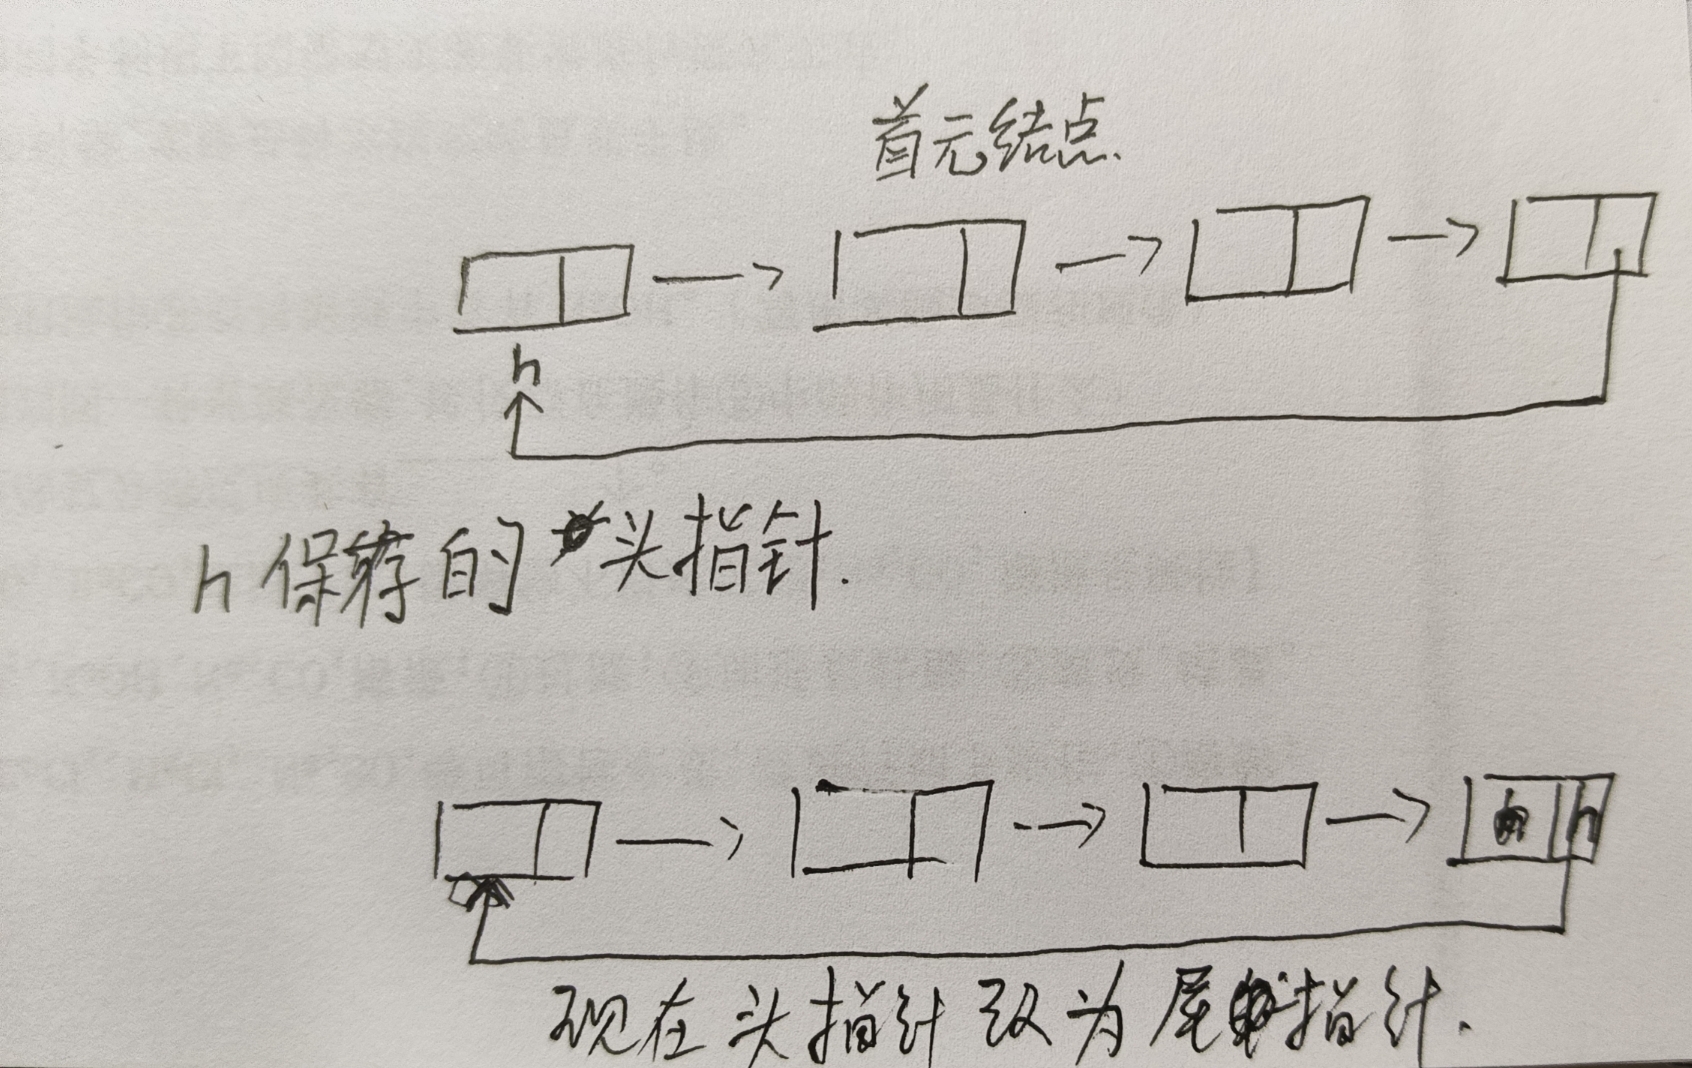 首元结点.
h
h 保存的 头指针.
h
现在头指针改为尾指针.